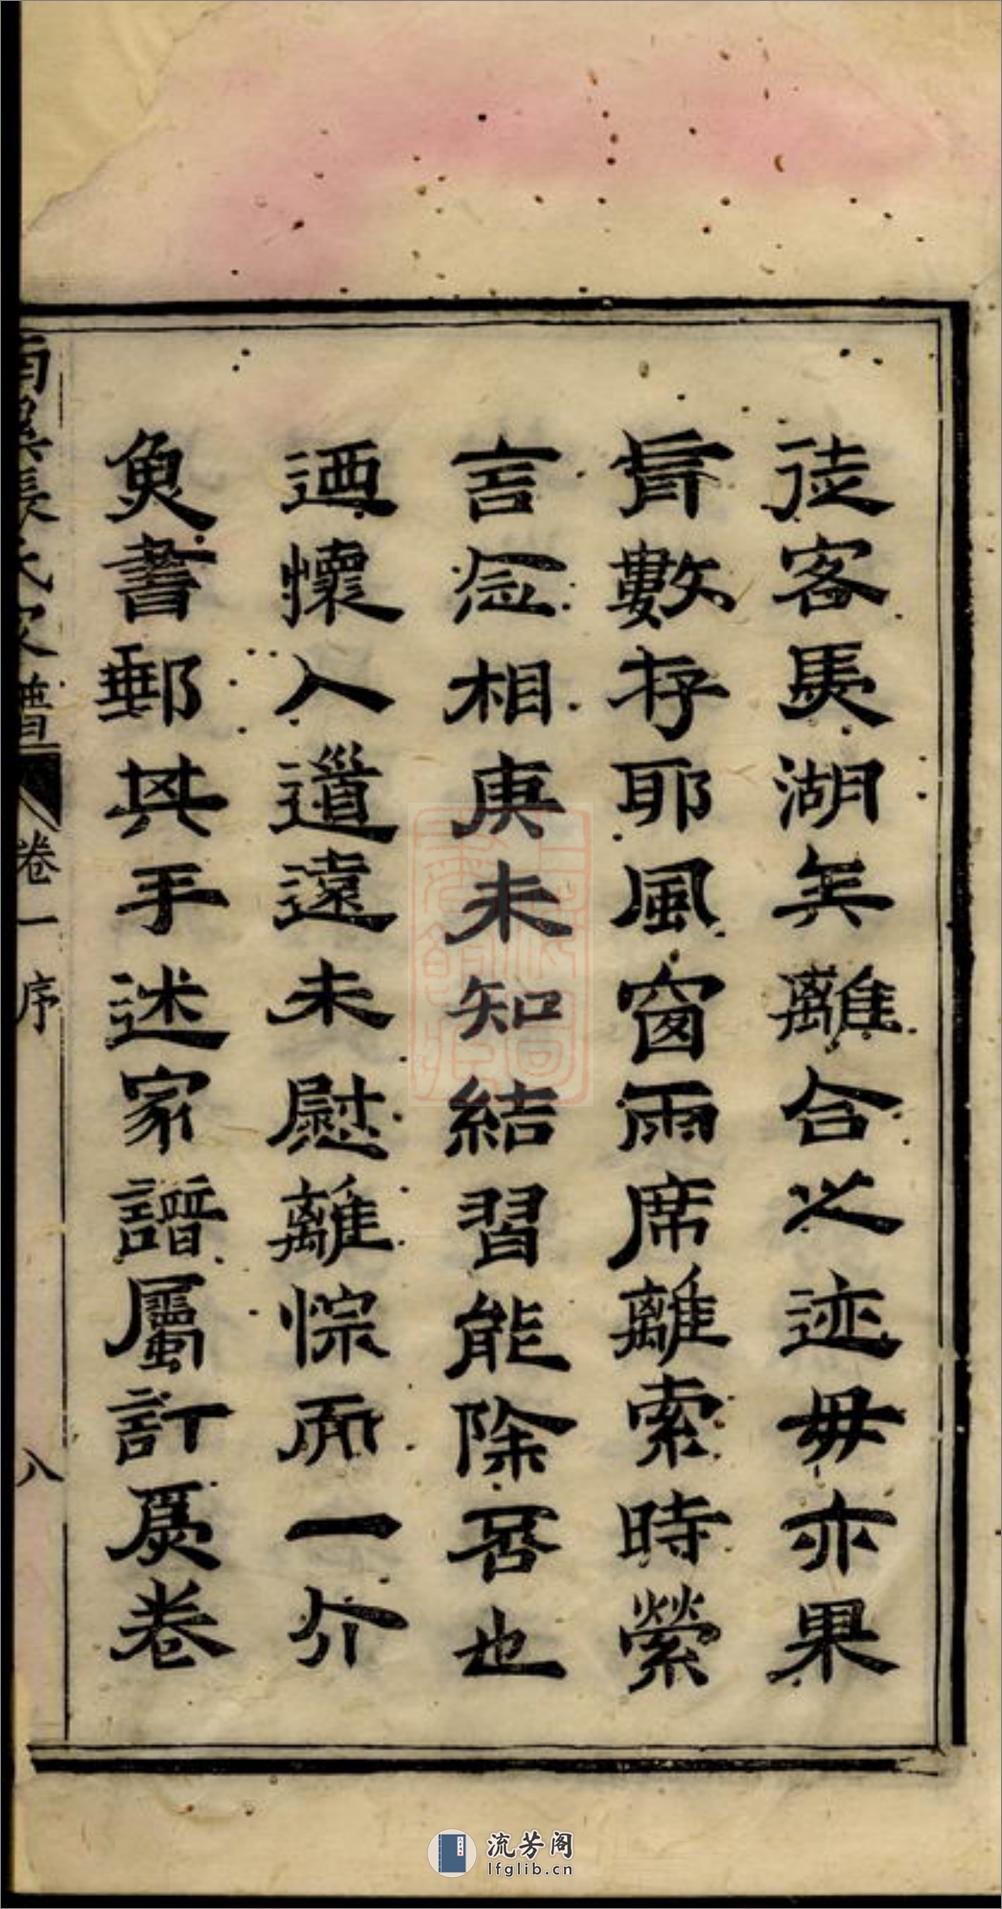 徒客馬湖矣離合之迹毋亦果
有數存耶風窗雨席離索時縈
言念相庚未知結習能除否也
迺懷人道遠未慰離悰而一介
魚書郵其手述家譜屬訂爲卷
南溪張氏家譜 卷一 序 八
流芳阁
lfglib.cn